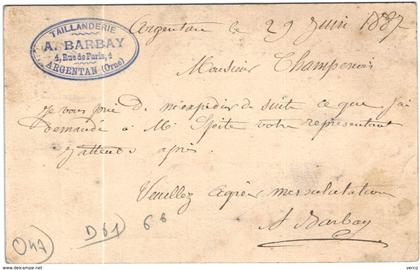 TAILLANDERIE
A. BARBAY
4, Rue de Paris, 4
ARGENTAN (Orne)
Argentan le 29 Juin 1887
Monsieur Champenois
Je vous prie de m'expedier de suite ce que j'ai
demandé à Mr votre representant
j'attends après
Veuillez agréer mes salutation
A Barbay
O47
D61
66
www.delcampe.net
vecco